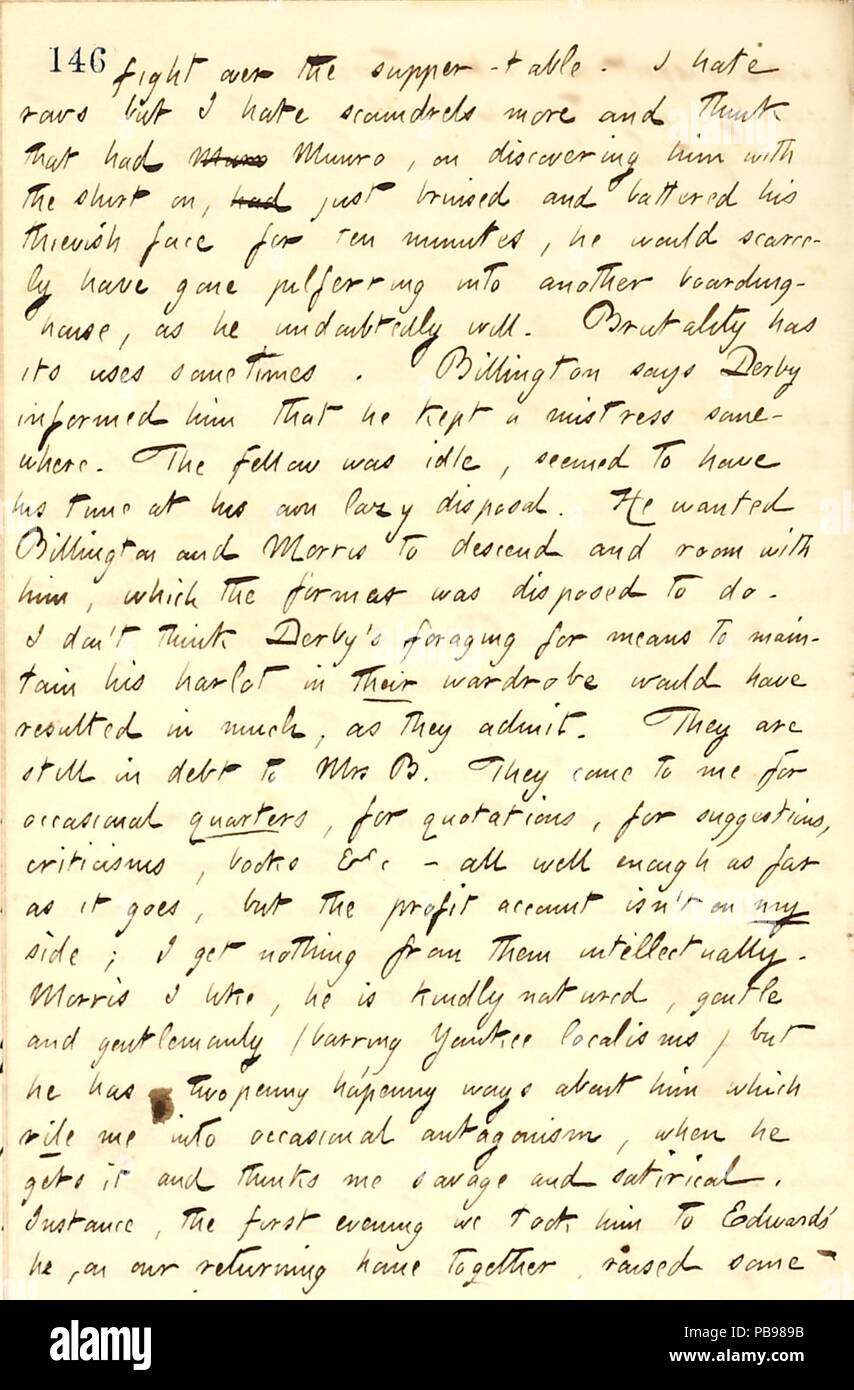 146 fight over the supper-table. I hate
rows but I hate scoundrels more and think
that had Munro, on discovering him with
the shirt on, had just bruised and battered his
thievish face for ten minutes, he would scarce-
ly have gone pilferring into another boarding-
house, as he undoubtedly will. Brutality has
its uses sometimes. Billington says Derby
informed him that he kept a mistress some-
where. The fellow was idle, seemed to have
his time at his own lazy disposal. He wanted
Billington and Morris to descend and room with
him, which the former was disposed to do.
I don't think Derby's foraging for means to main-
tain his harlot in their wardrobe would have
resulted in much, as they admit. They are
still in debt to Mrs B. They come to me for
occasional quarters, for quotations, for suggestions,
criticisms, books &c - all well enough as far
as it goes, but the profit account isn't on my
side; I get nothing from them intellectually.
Morris I like, he is kindly natured, gentle
and gentlemanly (barring Yankee localisms) but
he has twopenny ha'penny ways about him which
rile me into occasional antagonism, when he
gets it and thinks me savage and satirical.
Instance, the first evening we took him to Edwards'
he, on our returning home together, raised some-
alamy stock photo
PB989B
www.alamy.com